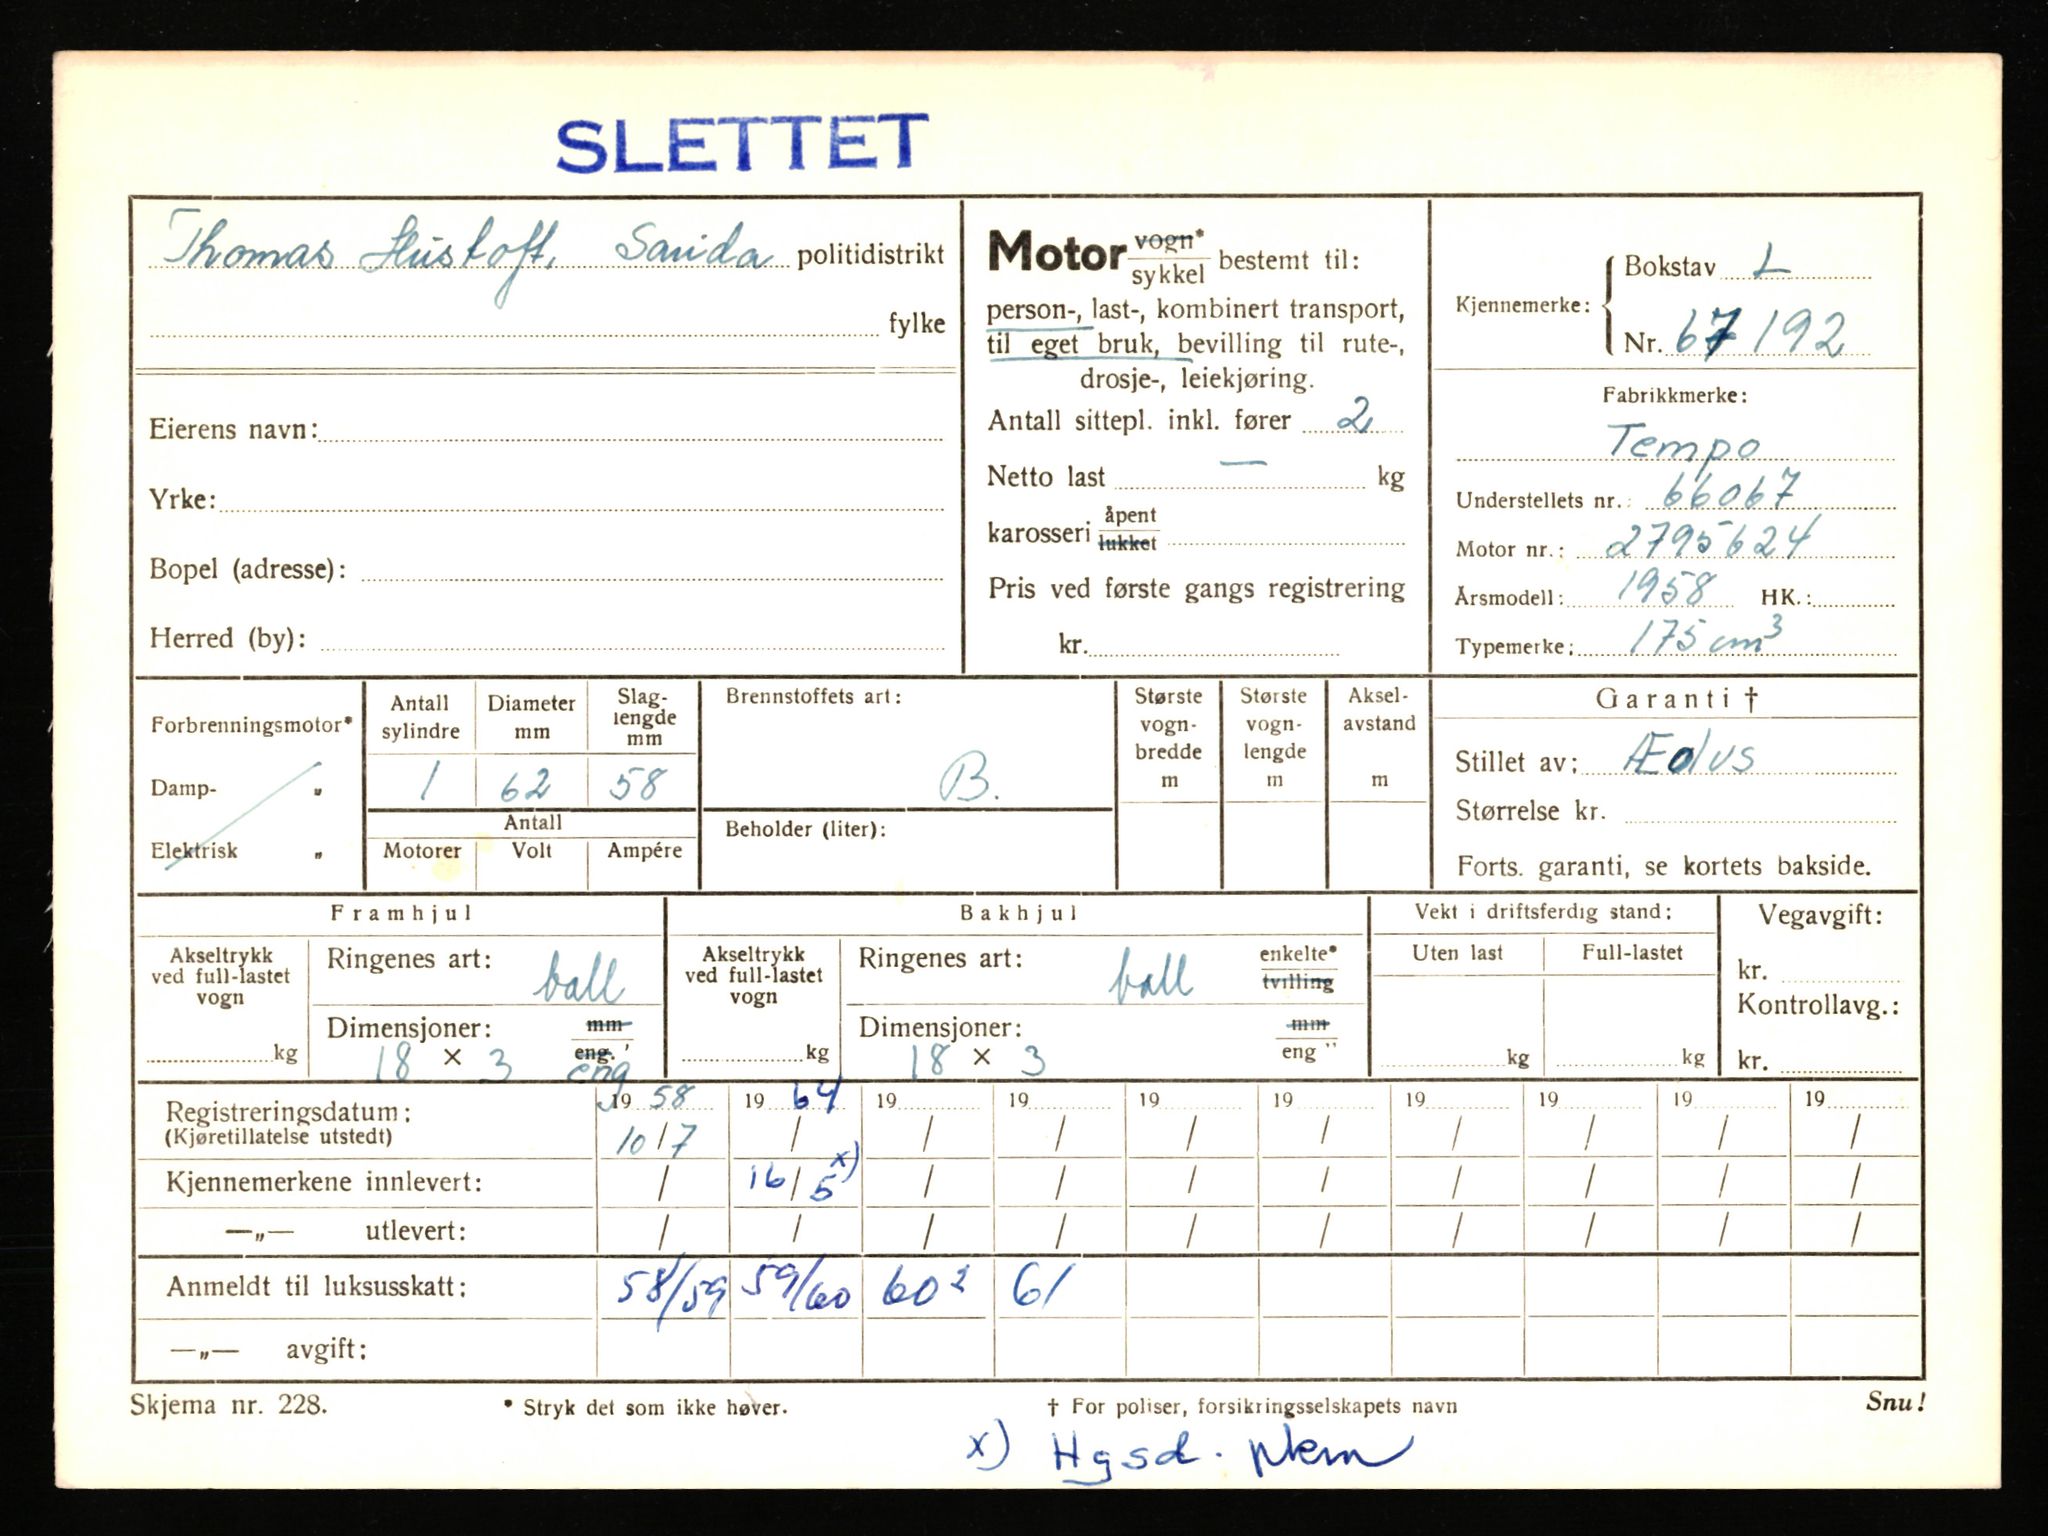 SLETTET
Thomas Hustoft, Sauda politidistrikt
fylke
Eierens navn:
Yrke:
Bopel (adresse):
Herred (by):
Motor vogn*
sykkel bestemt til:
person-, last-, kombinert transport,
til eget bruk, bevilling til rute-,
drosje-, leiekjøring.
Antall sittepl. inkl. fører 2
Netto last — kg
karosseri åpent
lukket
Pris ved første gangs registrering
kr.
Kjennemerke: Bokstav L
Nr. 67192
Fabrikkmerke:
Tempo
Understellets nr.: 66067
Motor nr.: 2795624
Årsmodell: 1958 HK.:
Typemerke: 175 cm³
Forbrenningsmotor*
Damp- „
Elektrisk „
Antall sylindre
Diameter mm
Slag-lengde mm
1 62 58
Antall
Motorer Volt Ampére
Brennstoffets art:
B.
Beholder (liter):
Største vogn-bredde m
Største vogn-lengde m
Aksel-avstand m
Garanti †
Stillet av: Æolus
Størrelse kr.
Forts. garanti, se kortets bakside.
Framhjul
Akseltrykk ved full-lastet vogn
kg
Ringenes art: ball
Dimensjoner: mm
eng.
18 × 3 eng
Bakhjul
Akseltrykk ved full-lastet vogn
kg
Ringenes art: ball enkelte*
tvilling
Dimensjoner: mm
18 × 3 eng "
Vekt i driftsferdig stand:
Uten last Full-lastet
kg kg
Vegavgift:
kr.
Kontrollavg.:
kr.
Registreringsdatum: 19 58 19 64 19 19 19 19 19 19 19 19
(Kjøretillatelse utstedt) 10/7 / / / / / / / / /
Kjennemerkene innlevert: / 16/5 x) / / / / / / / /
—„— utlevert: / / / / / / / / / /
Anmeldt til luksusskatt: 58/59 59/60 60² 61
—„— avgift:
Skjema nr. 228. * Stryk det som ikke høver. † For poliser, forsikringsselskapets navn Snu!
x) Hgsd.